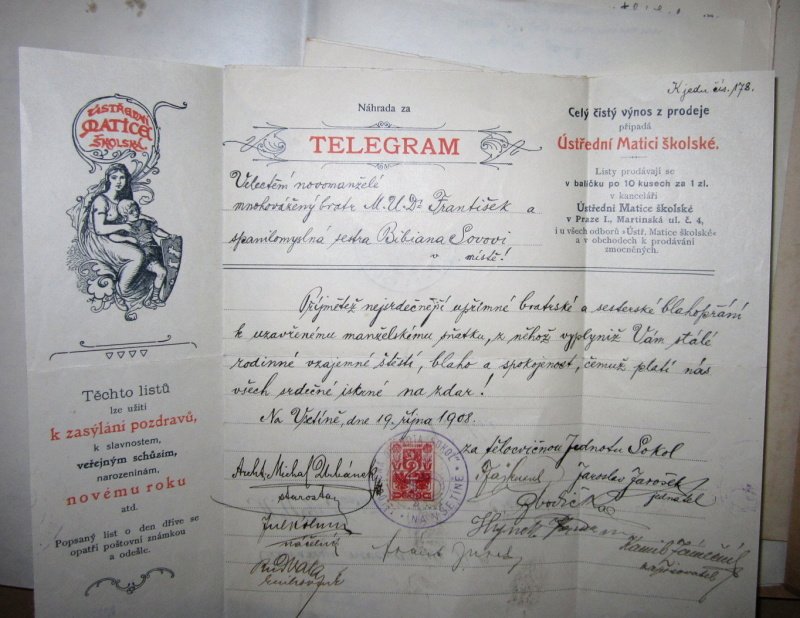 K jedn. čís. 178.
ÚSTŘEDNÍ
MATICE
ŠKOLSKÁ
Náhrada za
TELEGRAM
Celý čistý výnos z prodeje
připadá
Ústřední Matici školské.
Listy prodávají se
v balíčku po 10 kusech za 1 zl.
v kanceláři
Ústřední Matice školské
v Praze I., Martinská ul. č. 4,
i u všech odborů »Ústř. Matice školské«
a v obchodech k prodávání
zmocněných.
Velectění novomanželé
mnohovážený bratr M.U.Dr František a
spanilomyslná sestra Bibiana Sovovi
v místě!
Přijmětež nejsrdečnější upřímné bratrské a sesterské blahopřání
k uzavřenému manželskému sňatku, z něhož vyplyniž Vám stálé
rodinné vzajemné štěstí, blaho a spokojenost, čemuž platí nás
všech srdečné iskrné na zdar!
Na Vsetíně, dne 19. října 1908.
za tělocvičnou Jednotu Sokol
Těchto listů
lze užíti
k zasýlání pozdravů,
k slavnostem,
veřejným schůzím,
narozeninám,
novému roku
atd.
Popsaný list o den dříve se
opatří poštovní známkou
a odešle.
Archt. Michal
starosta
Jaroslav Jarošek
jednatel
náčelník
Hynek
Frant.
Kamil
zapisovatel
SOKOL
NA VSETÍNĚ
2